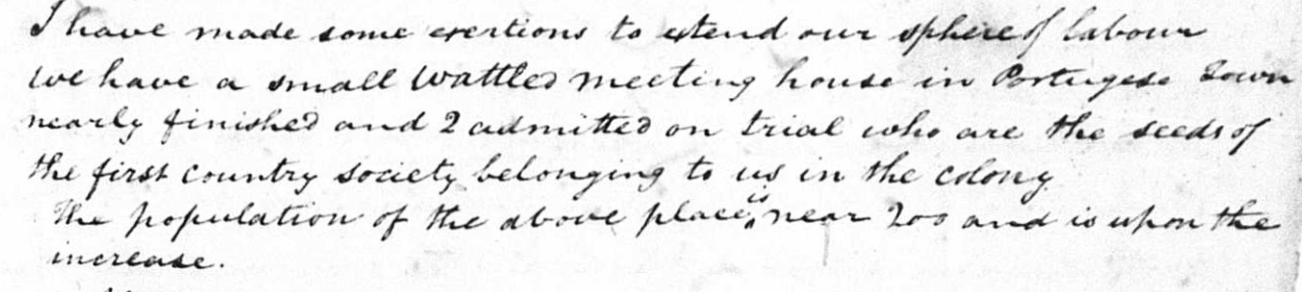 I have made some exertions to extend our sphere of labour
we have a small wattled meeting house in Portugese Town
nearly finished and 2 admitted on trial who are the seeds of
the first country society belonging to us in the colony
The population of the above place is near 200 and is upon the
increase.